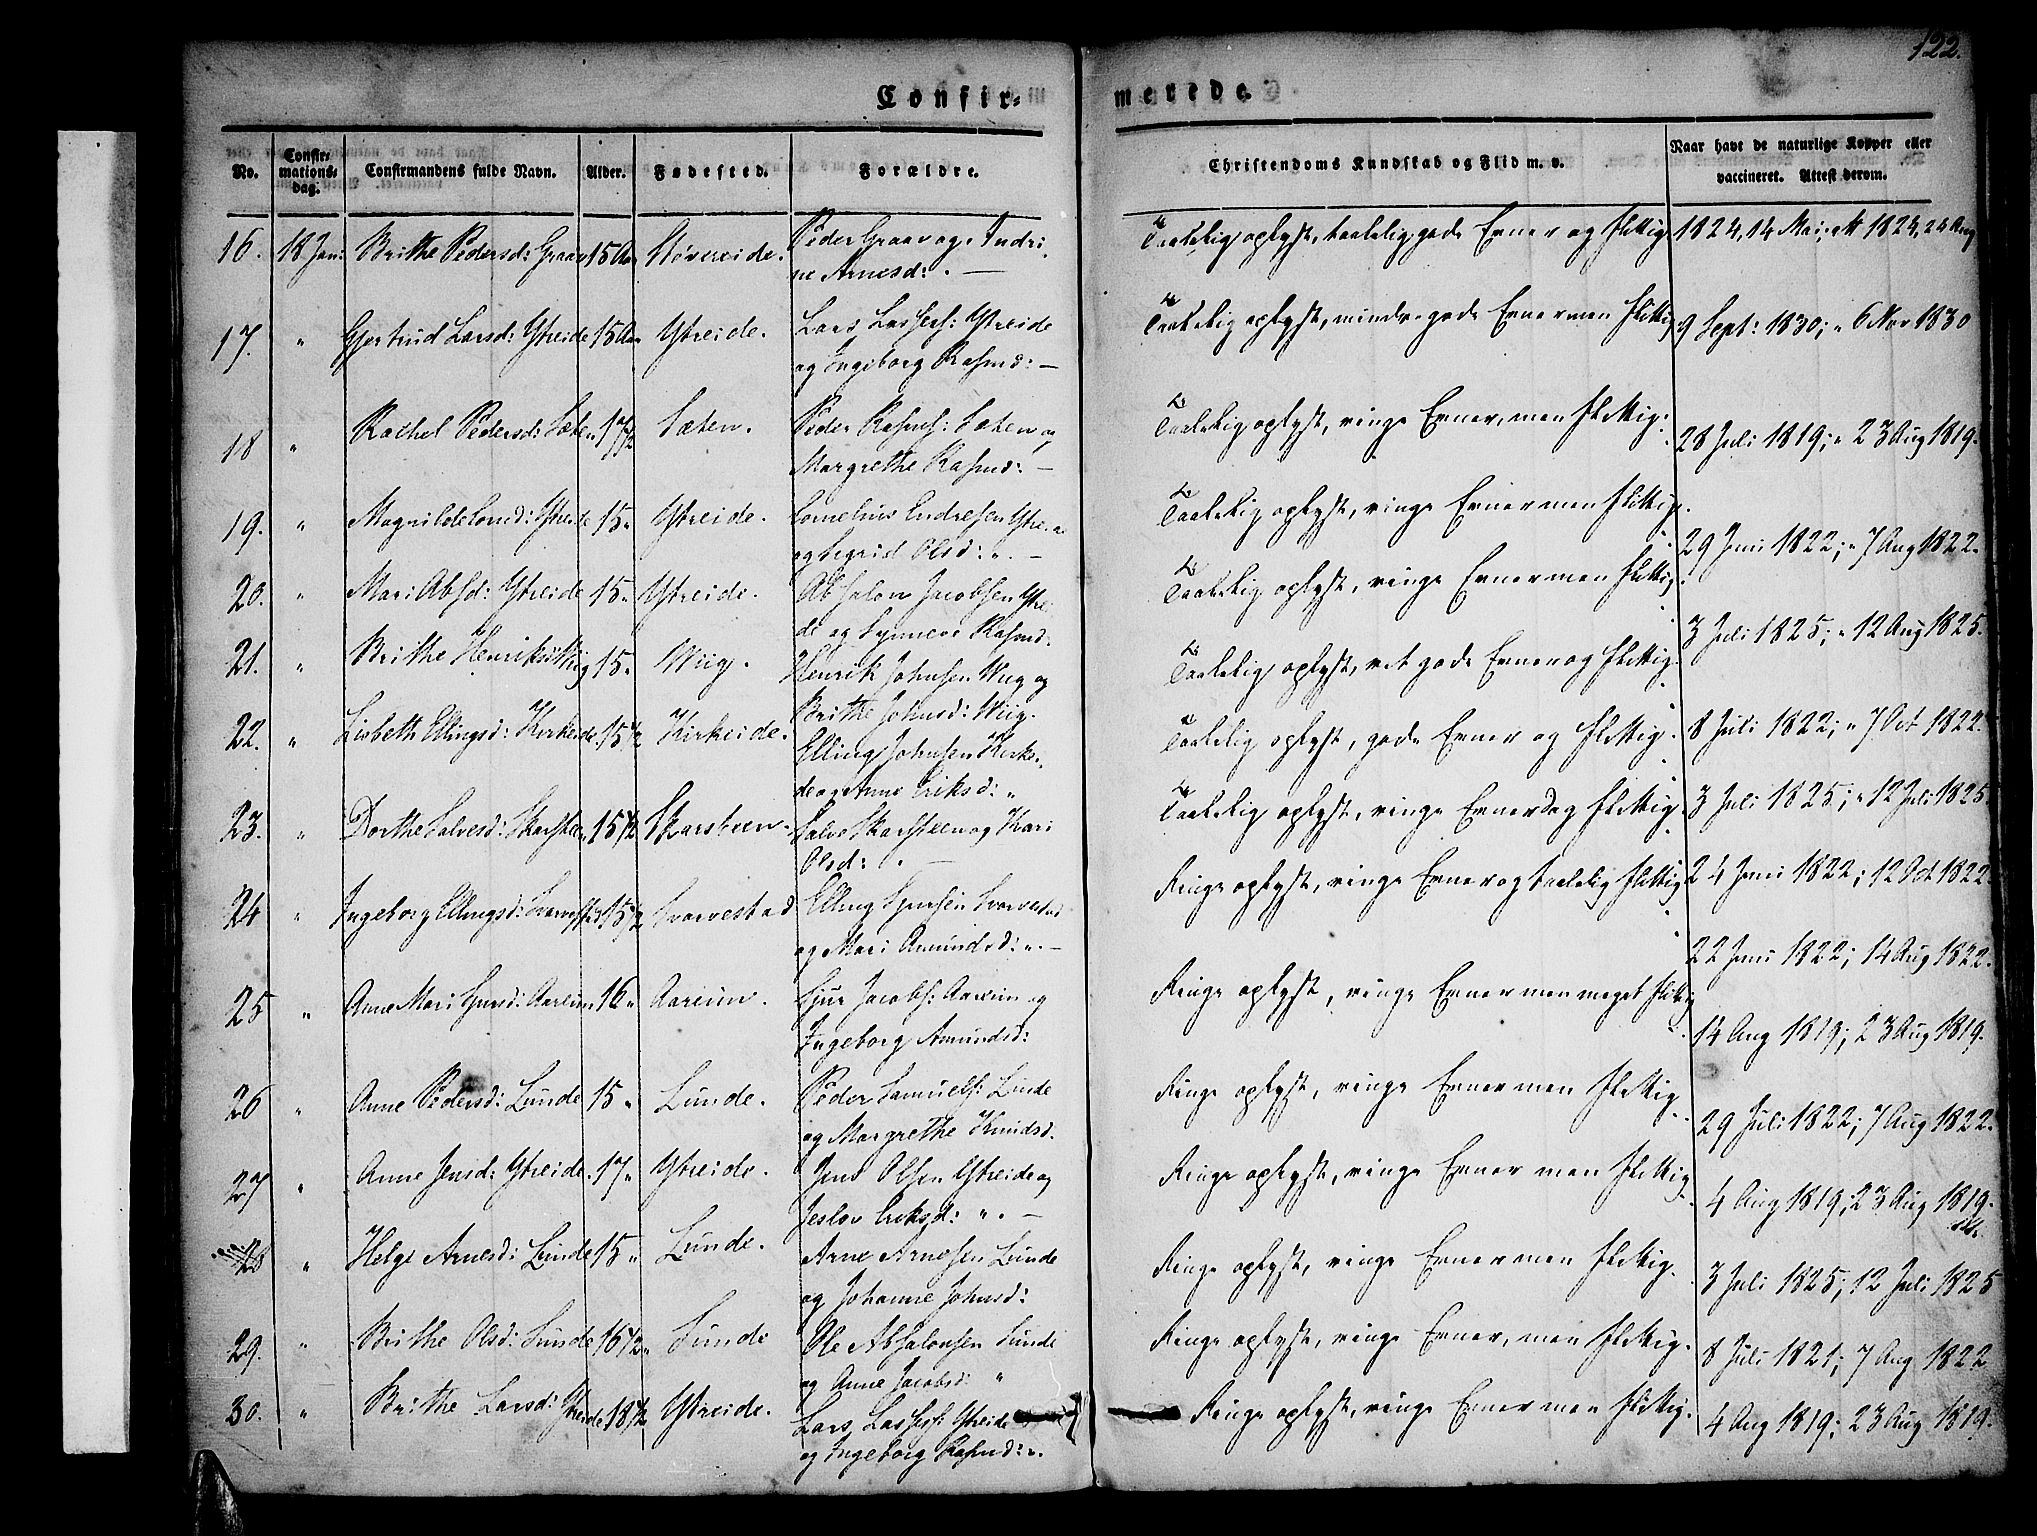 122.
Confir=
merede.
No.
Confir=
mations=
dag.
Confirmandens fulde Navn.
Alder.
Fødested.
Forældre.
Christendoms Kundskab og Flid m. v.
Naar havt de naturlige Kopper eller
vaccineret. Attest derom.
16. 18 Juni Brithe Pedersd: Graav 15 Aar Støvereide. Peder Graav og Indri- Taalelig oplyst, taalelig gode Evner og flittig. 1824, 14 Mai; att 1824, 24 Aug
ne Arnesd: . —
17. " Gjertrud Larsd: Ystreide 15 Aar Ystreide. Lars Lasses: Ystreide Taalelig oplyst, mindre gode Evner men flittig 9 Sept: 1830; " 6 Nov 1830
og Ingeborg Rasmd: —
18 " Rachel Pedersd: Sæten 17½ Sæten. Peder Rasms: Sæten og Taalelig oplyst, ringe Evner, men flittig. 28 Juli 1819; " 23 Aug 1819.
Margrethe Rasmd: —
19. " Magnilde Cornd: Ystreide 15 " Ystreide. Cornelius Endresen Ystre Taalelig oplyst, ringe Evner men flittig. 29 Juni 1822; " 7 Aug 1822.
og Sigrid Olsd: " . —
20. " Mari Absd: Ystreide 15 " Ystreide. Absalon Jacobsen Ystrei Taalelig oplyst, ringe Evner men flittig. 3 Juli 1825; " 12 Aug 1825.
de og Synneve Rasmd.
21. " Brithe Henriksd: Wiig 15 " Wiig. Henrik Johnsen Wiig og Taalelig oplyst, ret gode Evner og flittig. 8 Juli 1822; " 7 Oct 1822.
Brithe Johnsd: Wiig.
22. " Lisbeth Ellingsd: Kirkeide 15½ Kirkeide. Elling Johnsen Kirkei- Taalelig oplyst, gode Evner og flittig. 3 Juli 1825; " 12 Juli 1825.
de og Anne Eriksd: "
23. " Dorthe Salvesd: Skarsteen 15½ Skarsteen. Salve Skarsteen og Kari Taalelig oplyst, ringe Evner dog flittig. 24 Juni 1822; 12 Oct 1822.
Olsd: . —
24 " Ingeborg Ellingsd: Svarvestad 15½ Svarvestad Elling Sjursen Svarvestad Ringe oplyst, ringe Evner og taalelig flittig 22 Juni 1822; 14 Aug 1822.
og Mari Amundsd: " . —
25 " Anne Mari Sjursd: Aareim 16 " Aareim. Sjur Jacobs: Aareim og Ringe oplyst, ringe Evner men meget flittig 14 Aug 1819; 23 Aug 1819.
Ingeborg Amundsd:
26 " Anne Pedersd: Lunde 15 " Lunde. Peder Samuels: Lunde Ringe oplyst, ringe Evner men flittig. 29 Juli 1822; 7 Aug 1822.
og Margrethe Knudsd.
27 " Anne Jensd: Ystreide. 17 " Ystreide. Jens Olsen Ystreide og Ringe oplyst, ringe Evner men flittig. 4 Aug 1819; 23 Aug 1819.
Jeslov Eriksd: " . —
28 " Helge Arnesd: Lunde 15 " Lunde. Arne Arnesen Lunde Ringe oplyst, ringe Evner men flittig. 3 Juli 1825; 12 Juli 1825
og Johanne Johnsd:
29. " Brithe Olsd: Lunde 16½ " Lunde Ole Absalonsen Lunde Ringe oplyst, ringe Evner, men flittig. 8 Juli 1821; 7 Aug 1822
og Anne Jacobsd: "
30. " Brithe Larsd: Ystreide 18½ Ystreide. Lars Lasses: Ystreide Ringe oplyst, ringe Evner men flittig. 4 Aug 1819; 23 Aug 1819.
og Ingeborg Rasmd: " .